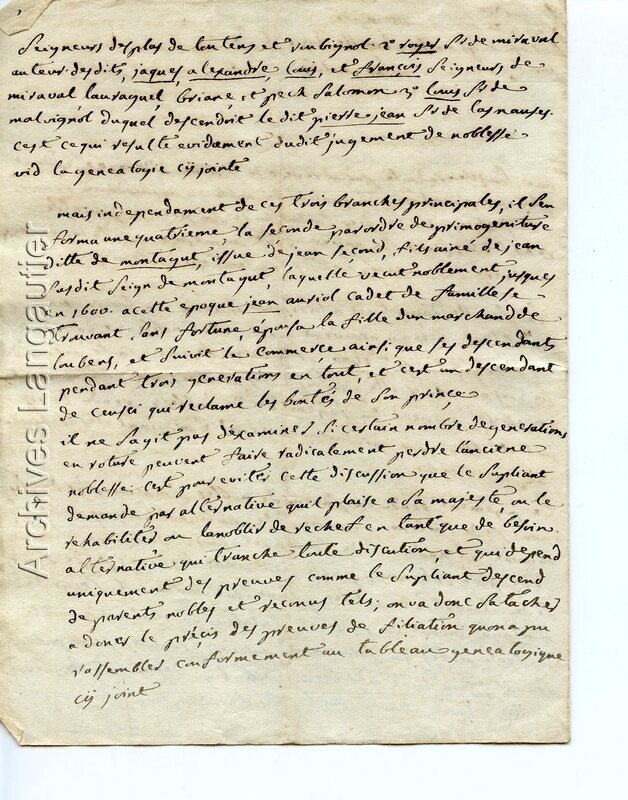 Seigneurs desplas de loutens et roubignol. 2° royer Sr de miraval
auteur desdits, jaques alexandre, Louis, et françois Seigneurs de
miraval lauraguel, briane et pech Salomon 3° Louis Sr de
malvignol duquel descendoit le dit pierre jean Sr de lasnauses.
cest ce qui resulte evidament dudit jugement de noblesse
vid la genealogie cÿ jointe
mais independament de ces trois branches principales, il s'en
forma une quatrieme, la seconde par ordre de primogeniture
ditte de montagut, issue de jean second, fils ainé de jean
susdit Seign de montagut, laquelle vecut noblement jusques
en 1600. a cette epoque jean auriol cadet de famille se
trouvant sans fortune, épousa la fille dun marchand de
loubens, et Suivit le commerce ainsi que ses descendants
pendant trois generations en tout, et c'est un descendant
de ceusci qui reclame les bontés de son prince.
il ne sagit pas dexaminer si certain nombre de generations
en roture peuvent faire radicalement perdre lanciene
noblesse: cest pour eviter cette discussion que le Supliant
demande par alternative quil plaise a Sa majesté, ou le
rehabiliter ou lanoblir de rechef en tant que de besoin.
alternative qui tranche toute discution, et qui depend
uniquement des preuves comme le Supliant descend
de parents nobles et reconus tels; on va donc Satacher
a doner le précis des preuves de filiation quon a pu
rassembler conformement au tableau genealogique
cÿ joint
Archives Langautier